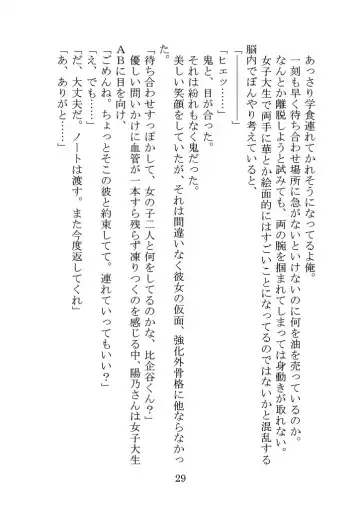 あっさり学食連れてかれそうになってるよ俺。
一刻も早く待ち合わせ場所に急がないといけないのに何を油を売っているのか。
なんとか離脱しようと試みても、両の腕を掴まれてしまっては身動きが取れない。
女子大生で両手に華とか絵面的にはすごいことになってるのではないかと混乱する
脳内でぼんやり考えていると、
「―――――」
「ヒェッ……」
鬼と、目が合った。
それは紛れもなく鬼だった。
美しい笑顔をしていたが、それは間違いなく彼女の仮面、強化外骨格に他ならなかっ
た。
「待ち合わせすっぽかして、女の子二人と何をしてるのかな、比企谷くん？」
優しい問いかけに血管が一本すら残らず凍りつくのを感じる中、陽乃さんは女子大生
ＡＢに目を向け、
「ごめんね。ちょっとそこの彼と約束してて。連れていってもいい？」
「え、でも……」
「だ、大丈夫だ。ノートは渡す。また今度返してくれ」
「あ、ありがと……」
29